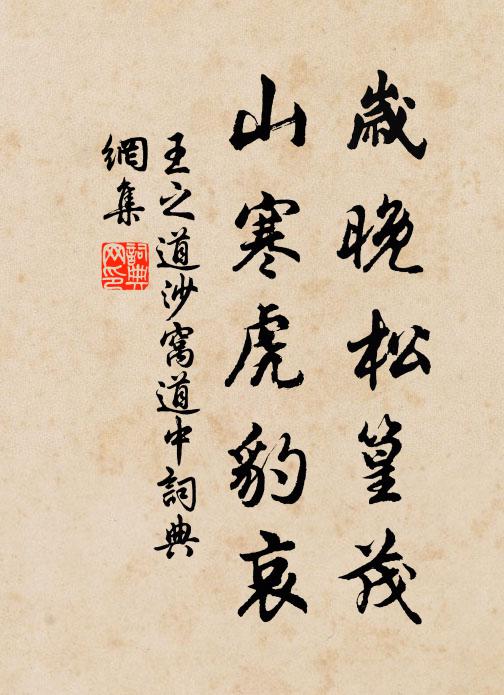 歲晚松篁茂
山寒虎豹哀
王之道沙窩道中詞典
網集
詞典
网印